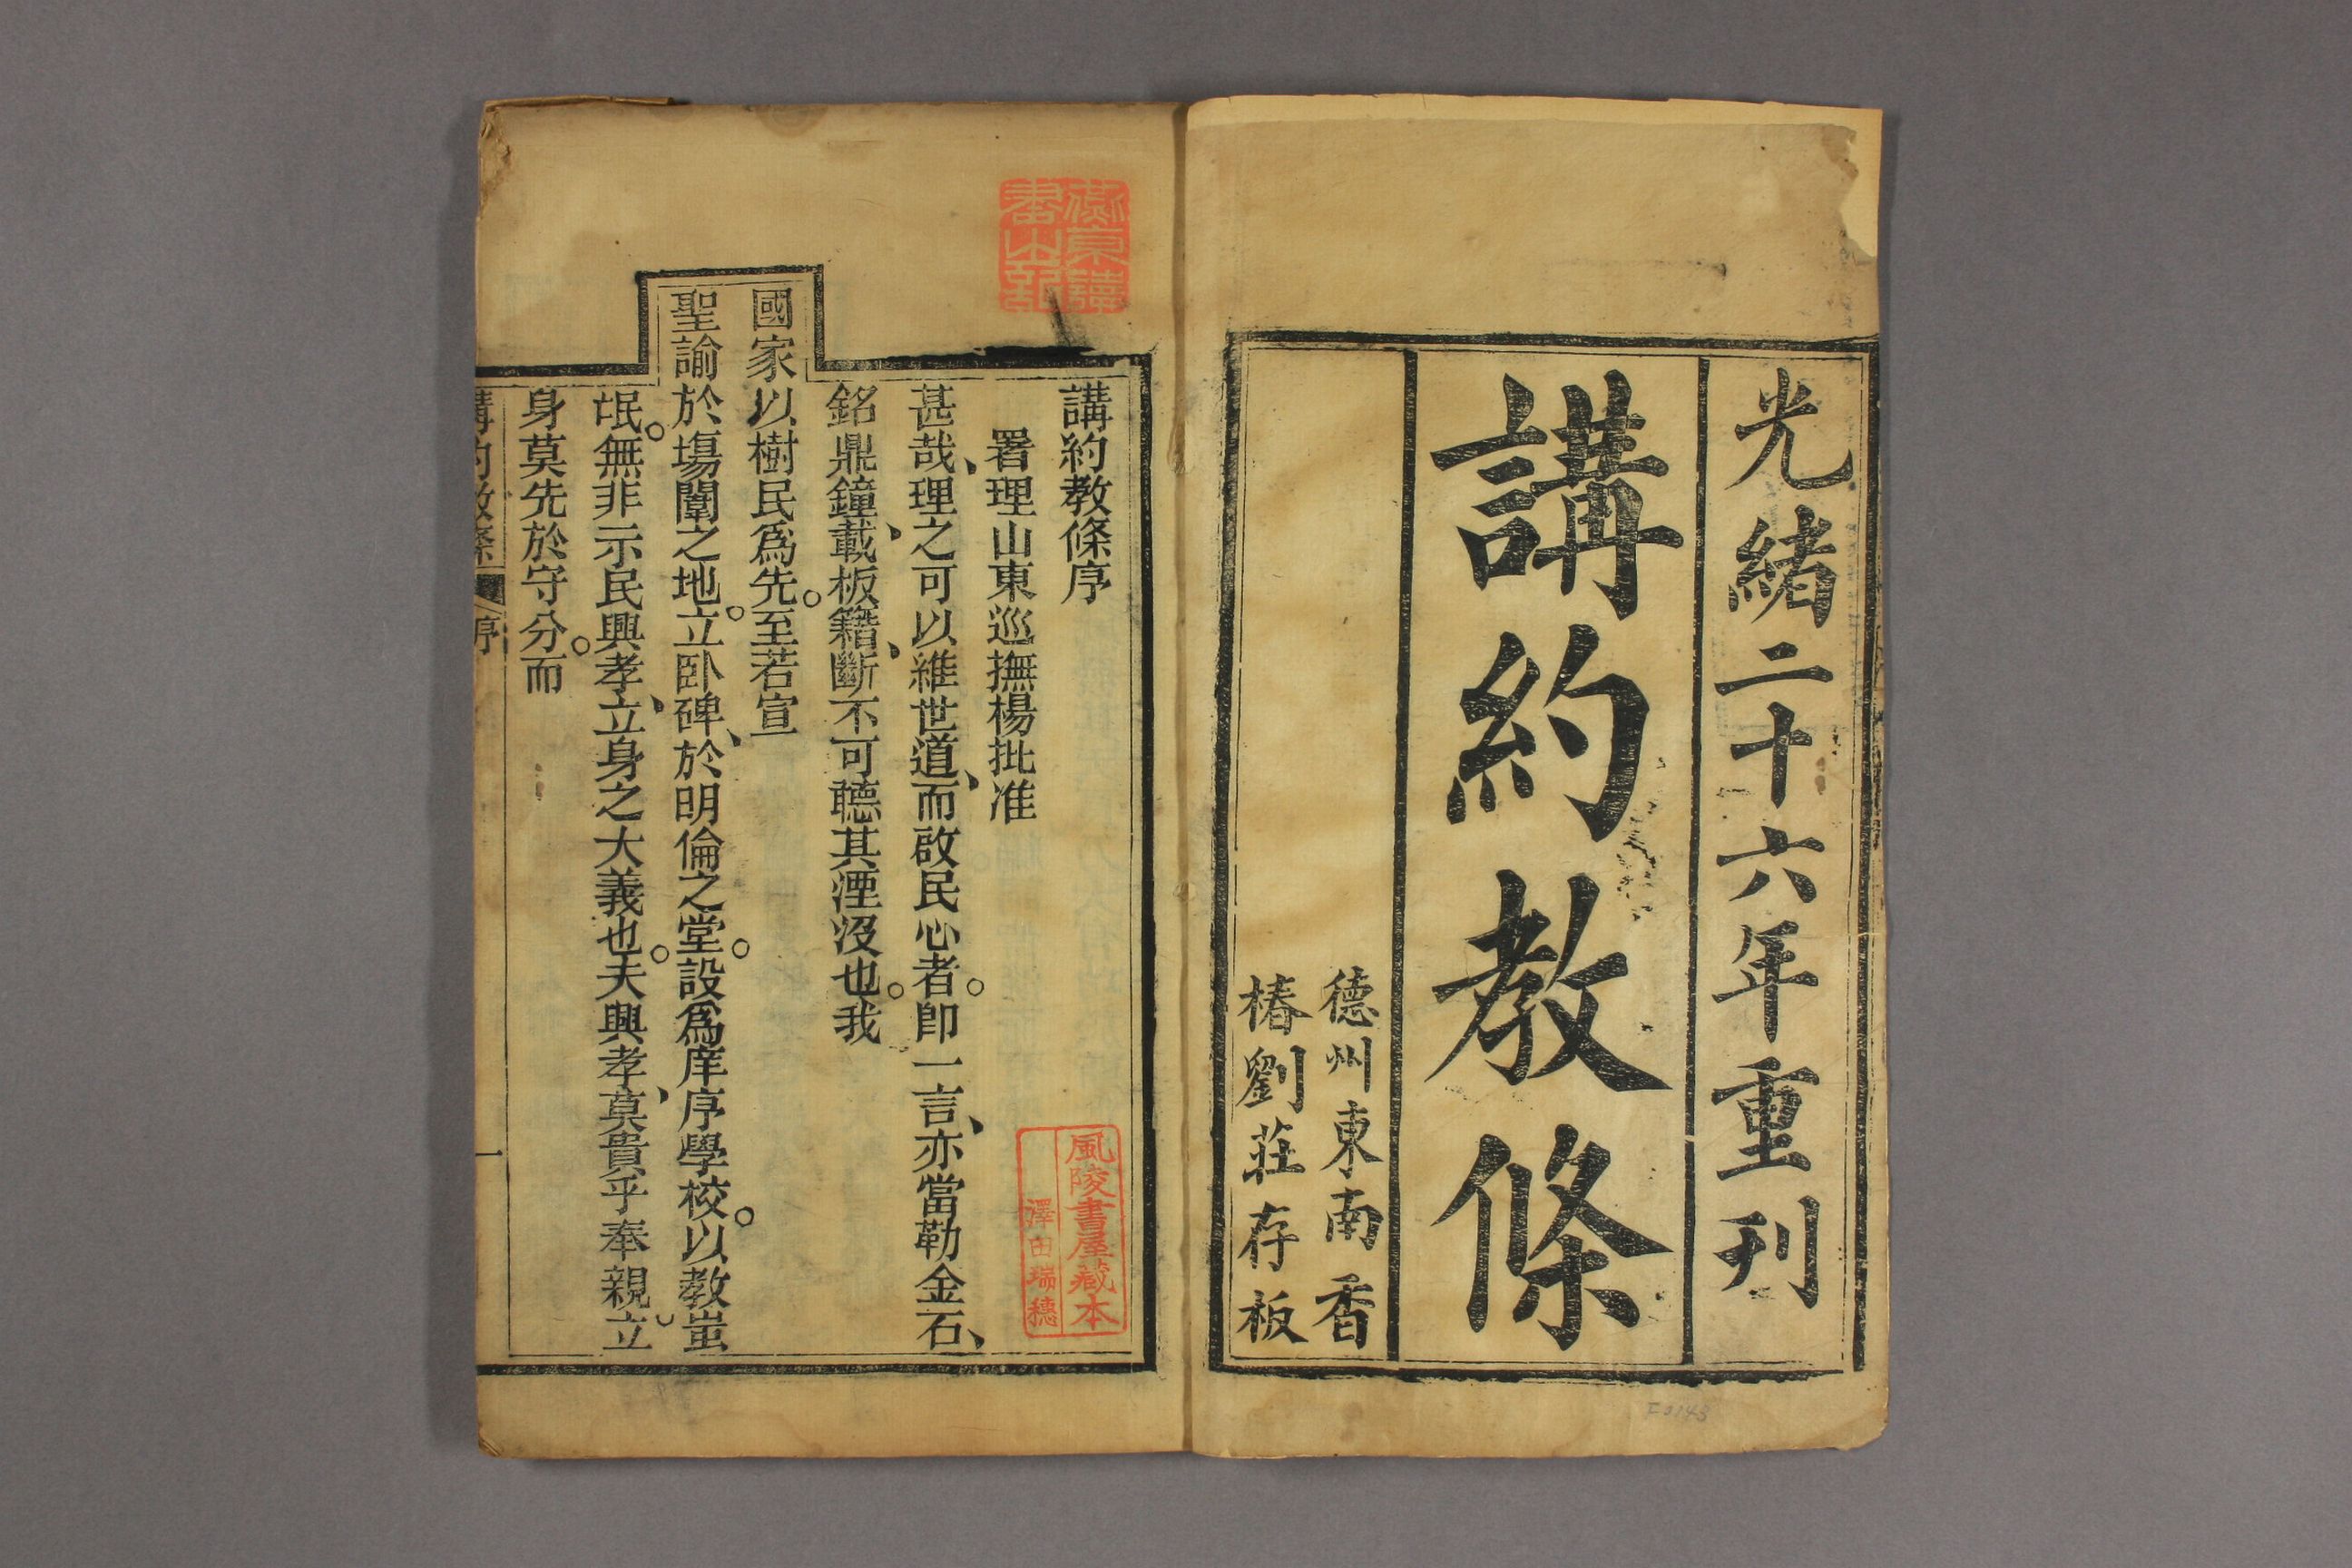 光緒二十六年重刊
講約教條
德州東南香
椿劉莊存板
講約教條序
署理山東巡撫楊批准
甚哉、理之可以維世道、而啟民心者。卽一言、亦當勒金石、
銘鼎鐘、載板籍、斷不可聽其湮沒也。我
國家以樹民爲先。至若宣
聖諭於塲闈之地。立卧碑、於明倫之堂。設爲庠序學校。以教蚩
氓。無非示民興孝、立身之大義也。夫興孝、莫貴乎奉親。立
身莫先於守分。而
講約教條 序 一
風陵書屋藏本
澤田瑞穗